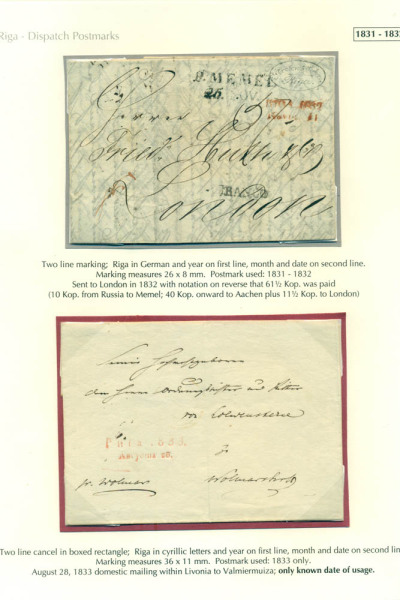 Riga - Dispatch Postmarks
1831 - 183
P. MEMEL
26
Herrn
Fried. Huth & Co
FRANCO
London
Two line marking; Riga in German and year on first line, month and date on second line.
Marking measures 26 x 8 mm. Postmark used: 1831 - 1832
Sent to London in 1832 with notation on reverse that 61½ Kop. was paid
(10 Kop. from Russia to Memel; 40 Kop. onward to Aachen plus 11½ Kop. to London)
den Herrn
und Ritter
von
Рига 1833.
Августа 28.
zu
pr. Wolmar
Wolmarshof
Two line cancel in boxed rectangle; Riga in cyrillic letters and year on first line, month and date on second lin
Marking measures 36 x 11 mm. Postmark used: 1833 only.
August 28, 1833 domestic mailing within Livonia to Valmiermuiza; only known date of usage.